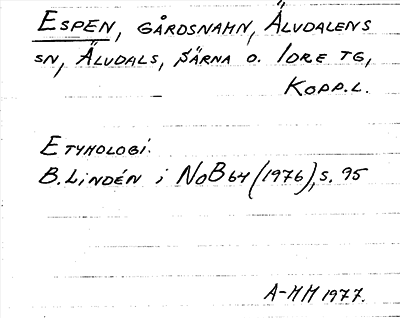 ESPEN, GÅRDSNAMN, ÄLVDALENS
SN, ÄLVDALS, SÄRNA O. IDRE TG,
KOPP.L.
ETYMOLOGI:
B. LINDÉN i NoB 64 (1976), S. 95
A-MM 1977.